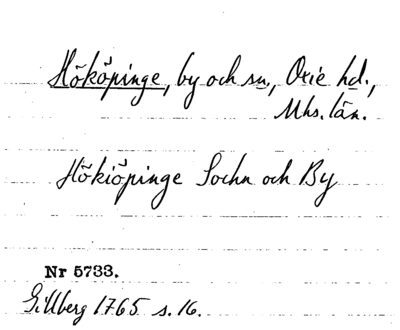 Hököpinge, by och sn, Oxie hd.,
Mhs. län.
Hökiöpinge Sochn och By
Nr 5733.
Gillberg 1765 s. 16.